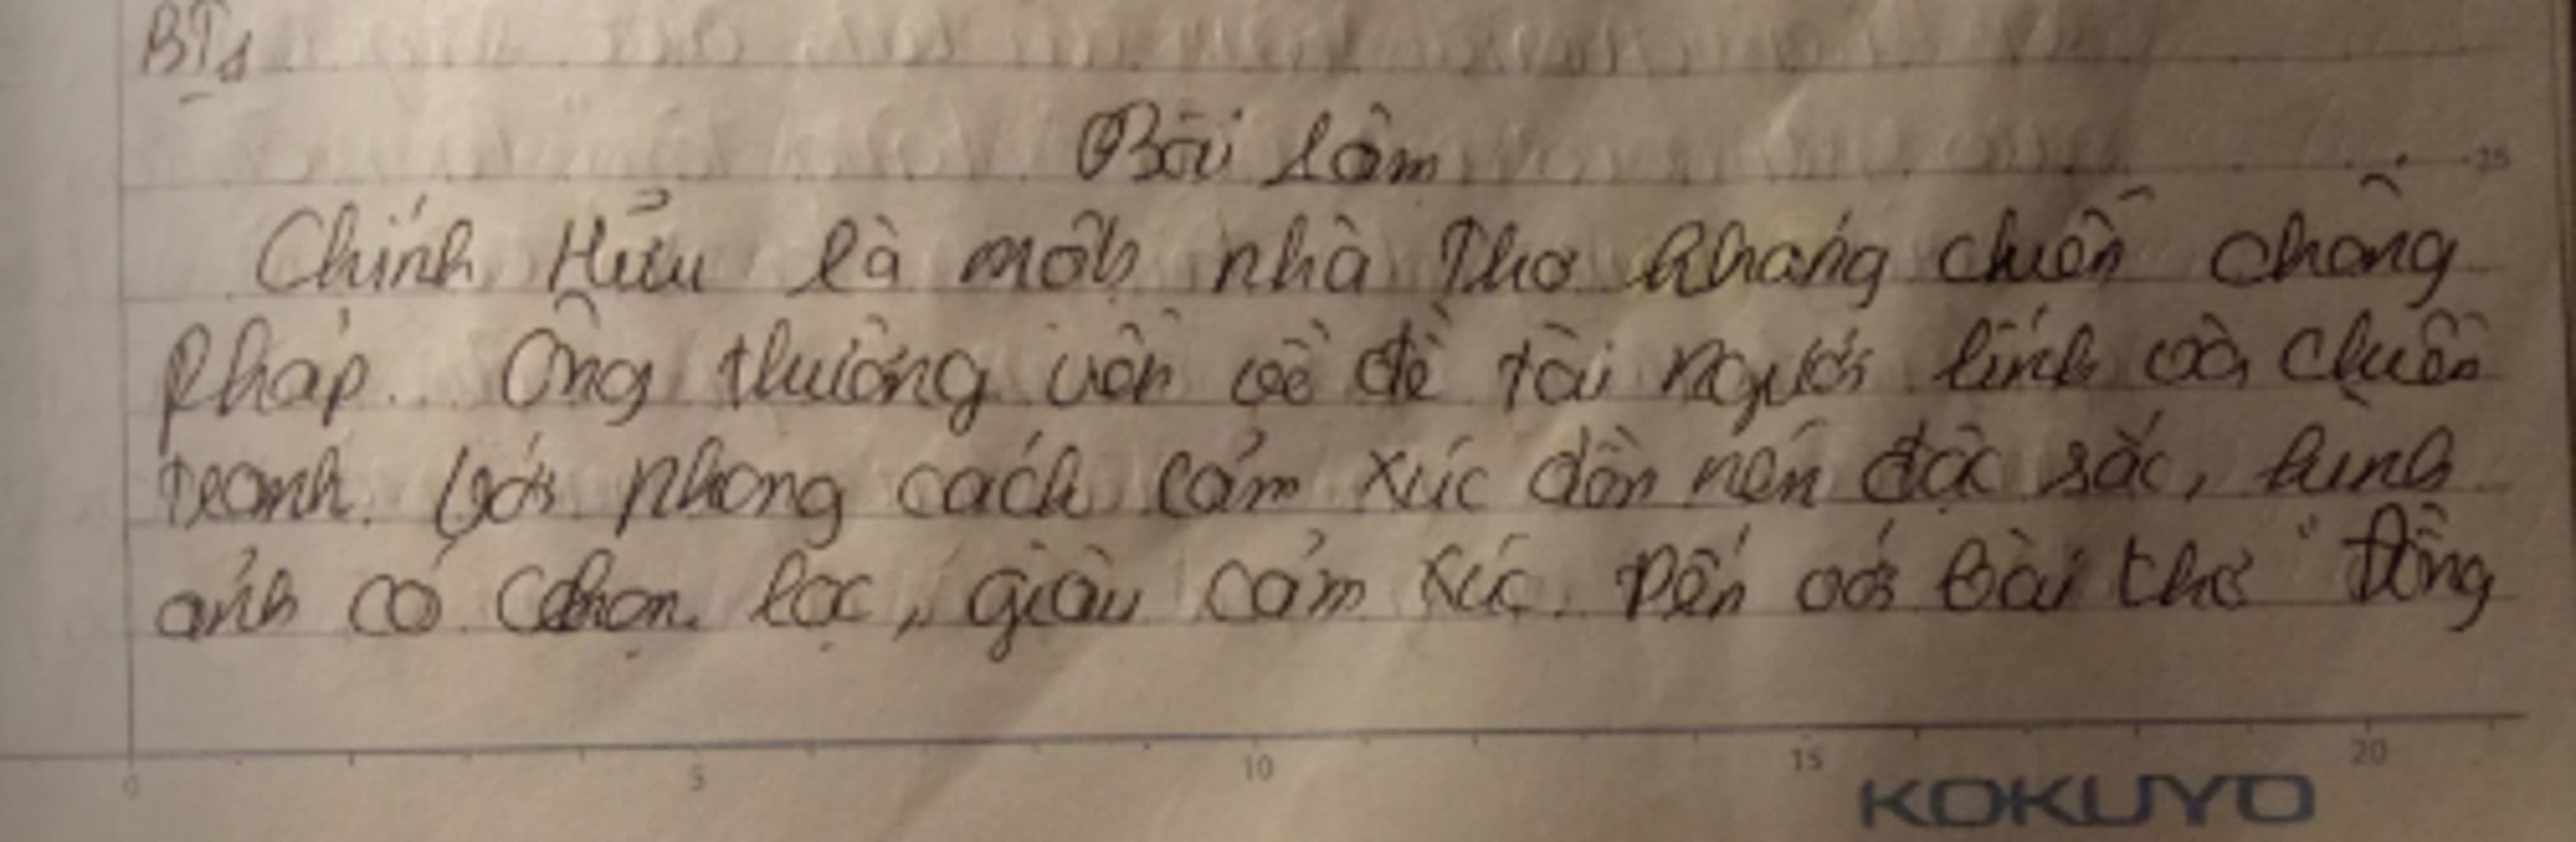 BT1
Bài làm
Chính Hữu là một nhà Thơ kháng chiến chống
Pháp. Ông thường viến về đề tài người lính và chiến
tranh. Với phong cách cảm xúc dồn nén đặc sắc, hình
ảnh có chọn lọc, giàu cảm xúc. Đến với bài thơ "Đồng
35
0 5 10 15 20
KOKUYO